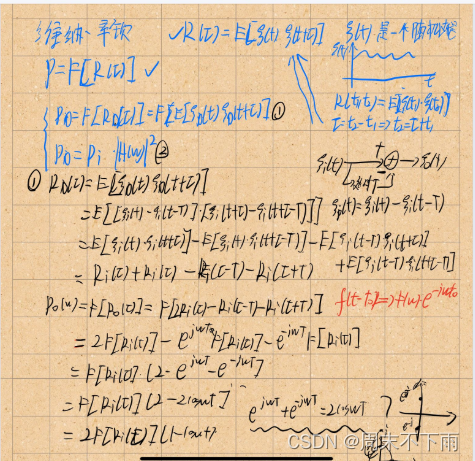 维纳-辛钦
P=F[R(τ)] ✓
✓R(τ)=E[ξ(t)·ξ(t+τ)]
ξ(t)是一个随机过程
ξ(t)
t
R(t1,t2)=E[ξ(t1)·ξ(t2)]
τ=t2-t1=>t2=τ+t1
P0=F[R0(τ)]=F[E[ξ0(t)·ξ0(t+τ)] ①
P0=Pi·|H(w)|² ②
① R0(τ)=E[ξ0(t)ξ0(t+τ)]
ξi(t) + → ξ0(t)
=E[[ξi(t)-ξi(t-T)]·[ξi(t+τ)-ξi(t+τ-T)]]
ξ0(t)=ξi(t)-ξi(t-T)
=E[ξi(t)·ξi(t+τ)]-E[ξi(t)·ξi(t+τ-T)]-E[ξi(t-T)·ξi(t+τ)]
+E[ξi(t-T)·ξi(t+τ-T)]
=Ri(τ)+Ri(τ)-Ri(τ-T)-Ri(τ+T)
P0(w)=F[R0(τ)]=F[2Ri(τ)-Ri(τ-T)-Ri(τ+T)]
f(t-t0)<=>F(w)·e^-jwt0
=2F[Ri(τ)]-e^jwT F[Ri(τ)]-e^-jwT F[Ri(τ)]
=F[Ri(τ)]·(2-e^jwT-e^-jwT)
=F[Ri(τ)](2-2coswT)
e^jwT+e^-jwT=2coswT
=2F[Ri(τ)](1-coswT)
CSDN @周末不下雨